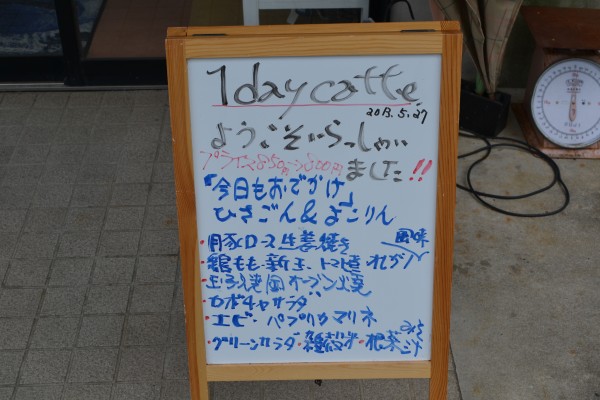 1day caffe
2013.5.27
ようこそいらっしゃい
ました!!
「今日もおでかけ」
ひさごん&よこりん
・豚ロース生姜焼き
・鶏もも・新玉 風味
オーブン焼
・カボチャサラダ
・エビ・パプリカマリネ
・グリーンサラダ・雑穀米・根菜汁